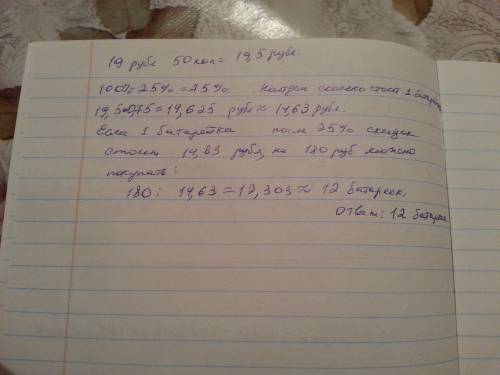 19 рубл 50 коп = 19,5 рубл.
100%-25% = 75%. Найдем сколько стоит 1 батарейк
19,5·0,75 = 14,625 рубл ≈ 14,63 рубл.
Если 1 батарейка после 25% скидок
стоит 14,63 рубл, на 180 руб можно
покупать:
180 : 14,63 = 12,303 ≈ 12 батареек.
Ответ: 12 батареек